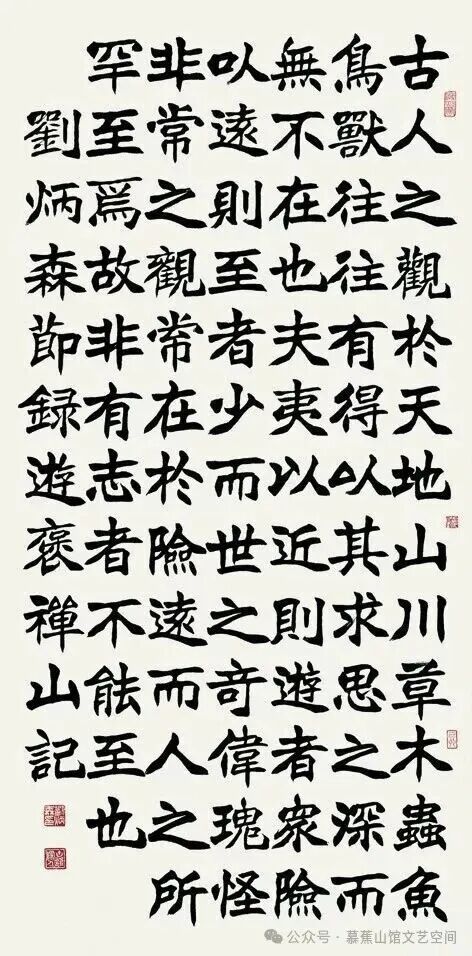 古人之觀於天地山川草木蟲魚
鳥獸往往有得以其求思之深而
無不在也夫夷以近則遊者衆險
以遠則至者少而世之奇偉瑰怪
非常之觀常在於險遠而人之所
罕至焉故非有志者不能至也
劉炳森節録遊褒禪山記
公众号 · 慕蕉山馆文艺空间